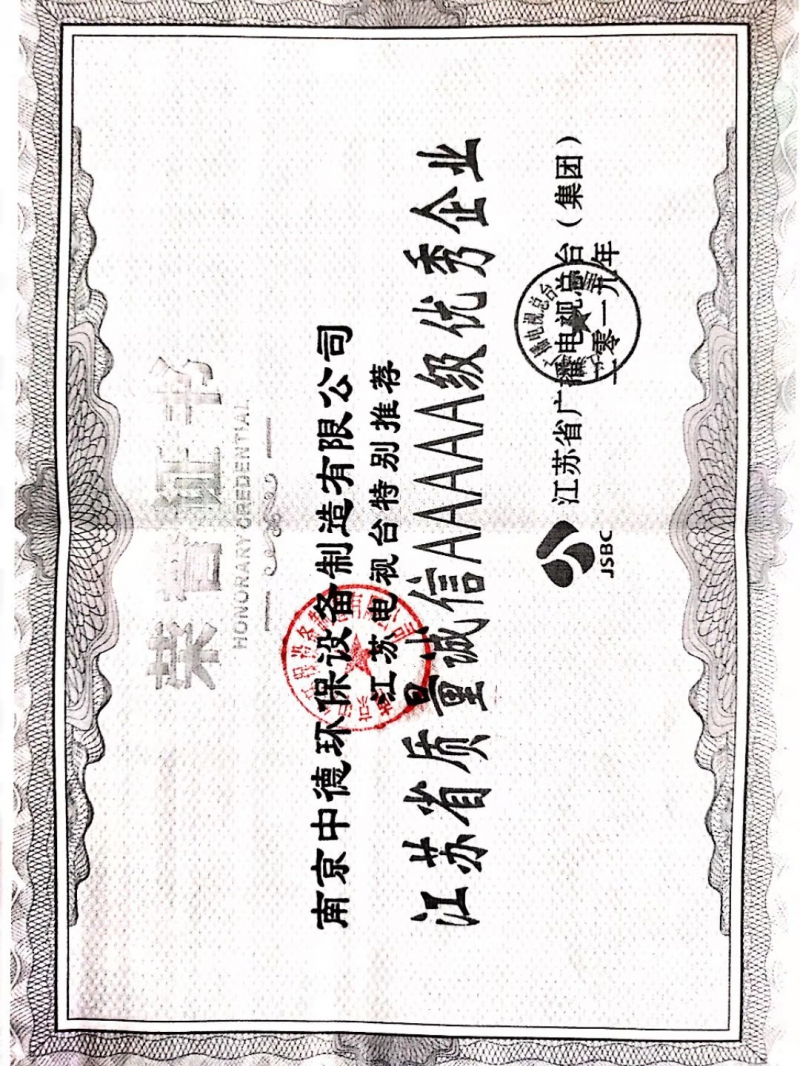 荣誉证书
HONORARY CREDENTIAL
南京中德环保设备制造有限公司
江苏电视台特别推荐
江苏省质量诚信AAAAA级优秀企业
JSBC
江苏省广播电视总台（集团）
二零一九年